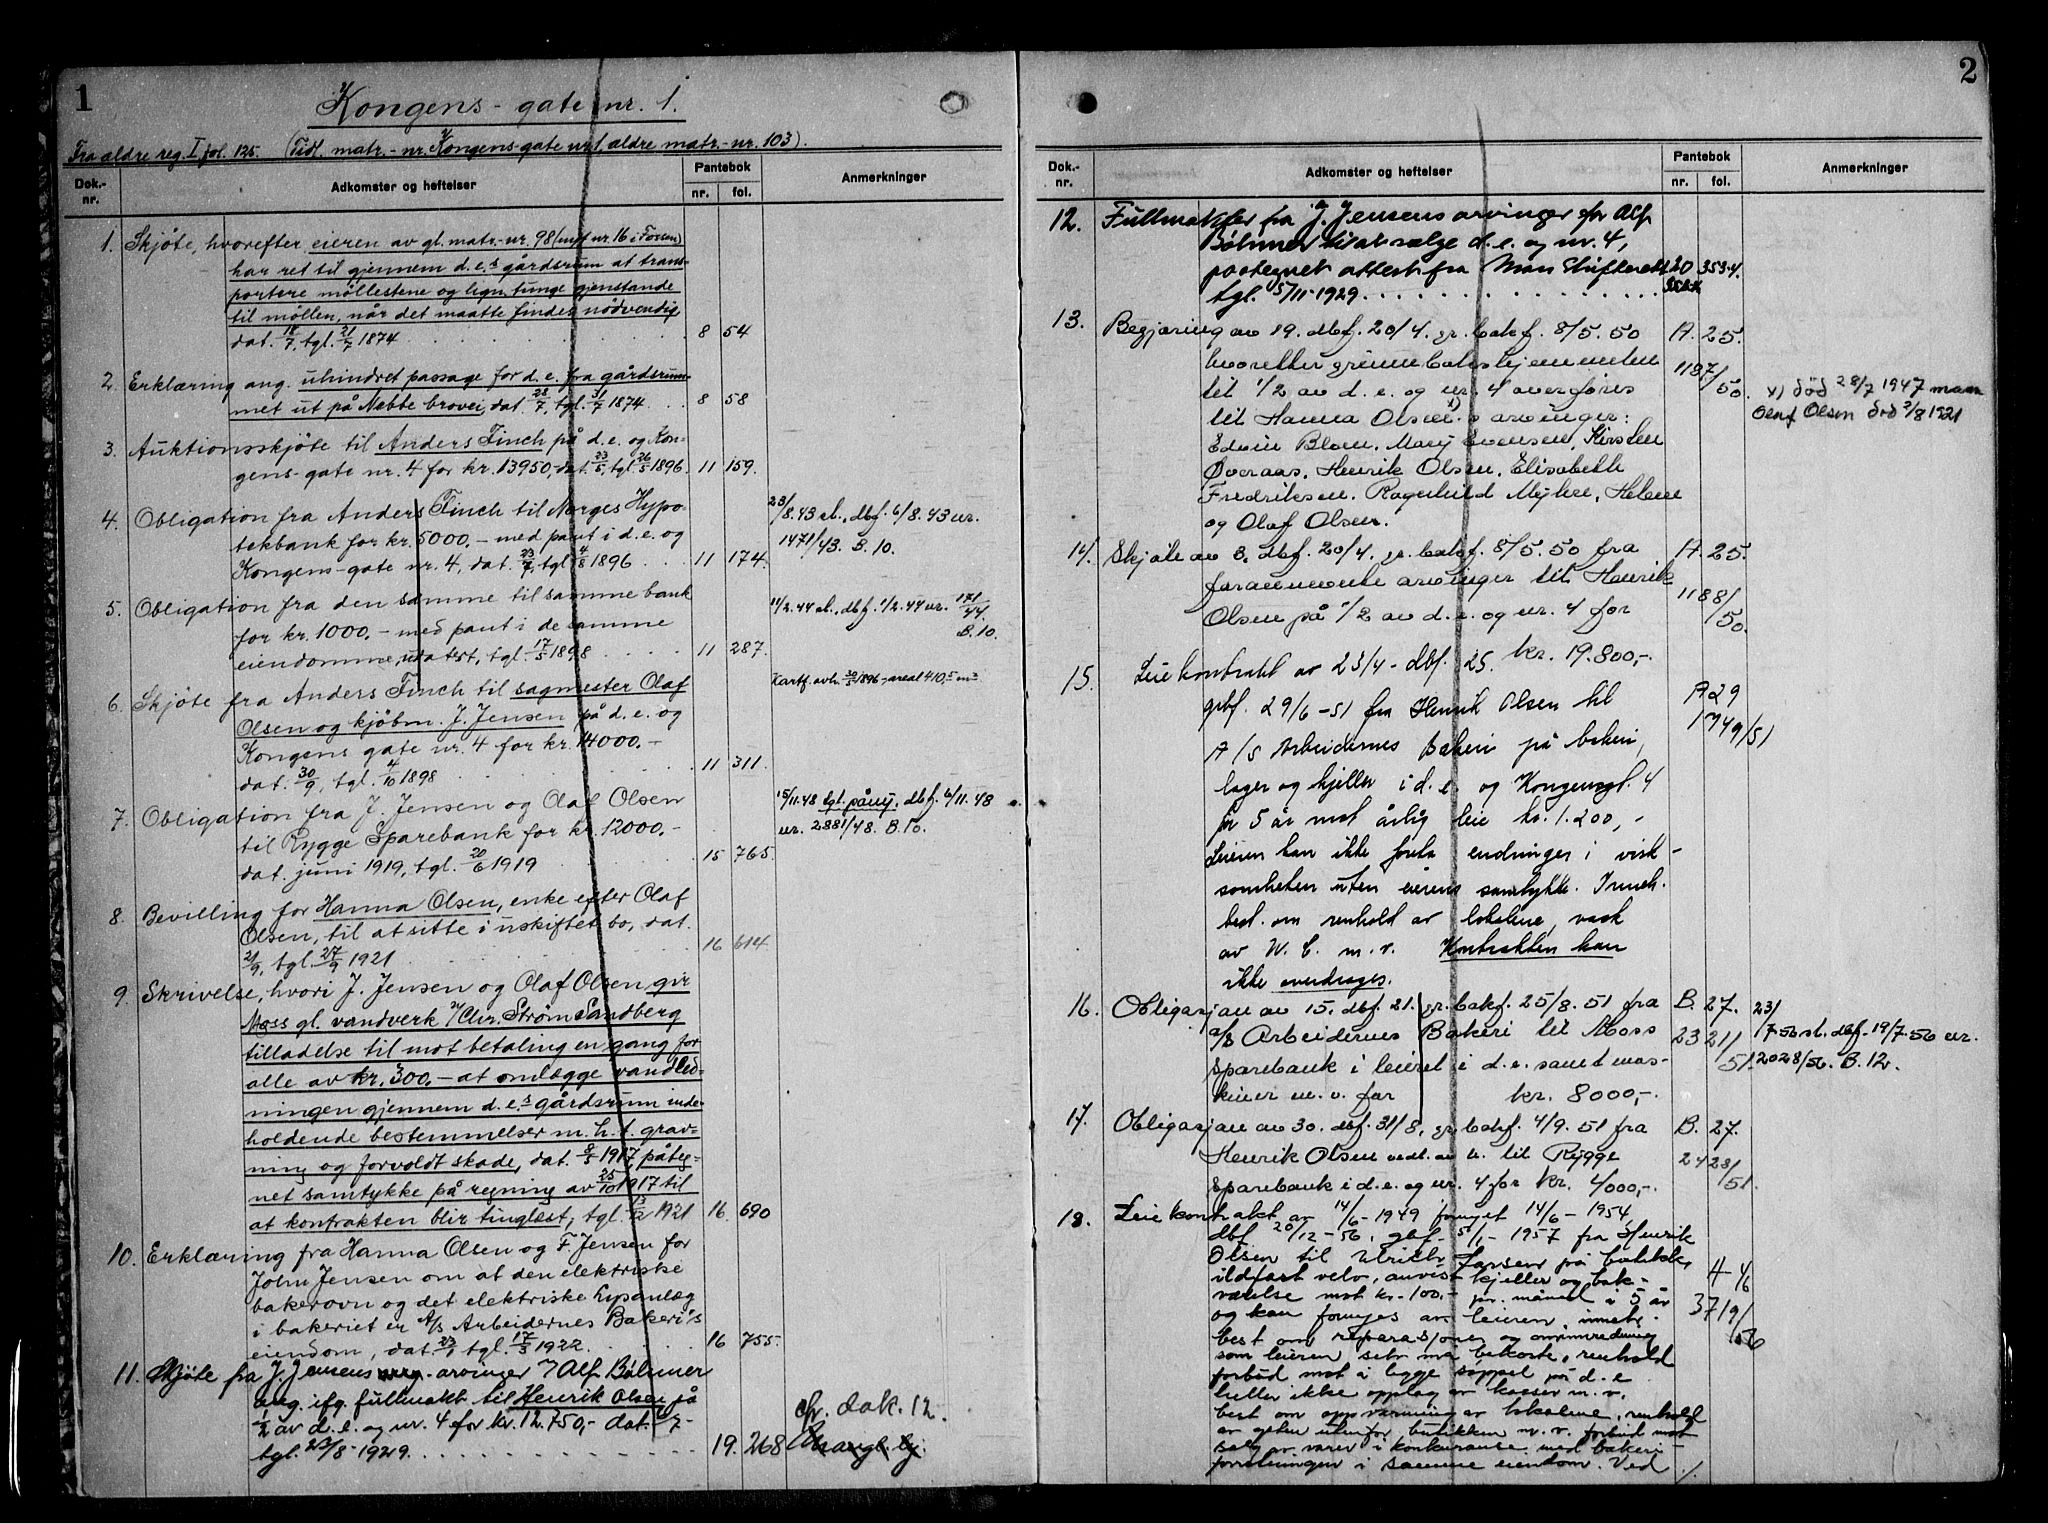 1
Kongens-gate nr. 1.
Fra ældre reg. I fol. 125. (Tidl. matr.-nr. Kongens-gate nr. 1, ældre matr.-nr. 103).
Dok.-nr. Adkomster og heftelser Pantebok nr. fol. Anmerkninger
1. Skjöte, hvorefter eieren av gl. matr.-nr. 98 (nyt nr. 16 i Fossen)
har ret til gjennem d.e.s gårdsrum at trans-
portere möllestene og lign. tunge gjenstande
til möllen, når det maatte findes nödvendig,
dat. 18/7, tgl. 21/7 1874 8 54
2. Erklæring ang. uhindret passage for d.e. fra gårdsrum-
met ut på Nebbe brovei, dat. 28/7, tgl. 31/7 1874 8 58
3. Auktionsskjöte til Anders Finch på d.e. og Kon-
gens-gate nr. 4 for kr. 13950,- dat. 23/5, tgl. 26/5 1896. 11 159.
4. Obligation fra Anders Finch til Norges Hypo-
tekbank for kr. 5000.- med pant i d.e. og
Kongens-gate nr. 4, dat. 23/7, tgl. 4/8 1896 11 174.
23/8.43 al., dbf. 6/8.43 nr.
1471/43. B. 10.
5. Obligation fra den samme til samme bank
for kr. 1000.- med pant i de samme
eiendomme, udatert, tgl. 17/5 1898 11 287.
11/2.44 al., dbf. 1/2.44 nr. 171/44.
B. 10.
6. Skjöte fra Anders Finch til sagmester Olaf
Olsen og kjöbm. J. Jensen på d.e. og
Kongens gate nr. 4 for kr. 14000.-
dat. 30/9, tgl. 4/10 1898 11 311.
Kartf. avh. 30/5 1896 - areal 410,5 m2
7. Obligation fra J. Jensen og Olaf Olsen
til Rygge Sparebank for kr. 12000.-
dat. juni 1919, tgl. 20/6 1919 15 765.
15/11.48 tgl. påny, dbf. 6/11.48
nr. 2881/48. B. 10.
8. Bevilling for Hanna Olsen, enke efter Olaf
Olsen, til at sitte i uskiftet bo, dat.
21/9, tgl. 27/9 1921 16 614
9. Skrivelse, hvori J. Jensen og Olaf Olsen gir
Moss gl. vandverk v/Chr. Ström Sandberg
tilladelse til mot betaling en gang for
alle av kr. 300.- at omlægge vandled-
ningen gjennem d.e.s gårdsrum inde-
holdende bestemmelser m.h.t. grav-
ning og forvoldt skade, dat. 8/5 1917, påteg-
net samtykke på regning av 25/10 1917 til
at kontrakten blir tinglæst, tgl. 13/12 1921 16 690
10. Erklæring fra Hanna Olsen og F. Jensen for
John Jensen om at den elektriske
bakerovn og det elektriske lysanlæg
i bakeriet er A/S Arbeidernes Bakeri's
eiendom, dat. 23/1, tgl. 17/3 1922. 16 755.
11. Skjöte fra J. Jensens arvinger v/ Alf Böhmer
ifg. fullmakt til Henrik Olsen på
1/2 av d.e. og nr. 4 for kr. 12.750,- dat.
tgl. 1929. 19. 268
cfr. dok. 12.
2
Dok.-nr. Adkomster og heftelser Pantebok nr. fol. Anmerkninger
12. Fullmakter fra J. Jensens arvinger for Alf
Böhmer til at sælge d.e. og nr. 4,
paategnet attest fra Moss Skifteret 20 353-4.
tgl. 5/11-1929.
13. Begjæring av 19. dbf. 20/4. gr. bakf. 8/5.50 A. 25.
hvoretter grunnbokshjemmelen 1187/50.
til 1/2 av d.e. og nr. 4 overføres
til Hanna Olsen x)s arvinger:
Edwin Bloen, Mary Evensen, Kirsten
Øveraas, Henrik Olsen, Elisabeth
Fredriksen, Ragnhild Myhre, Helene
og Olaf Olsen.
x) död 28/7 1947 mann
Olaf Olsen död 3/8 1921
14. Skjöte av 8. dbf. 20/4. gr. bakf. 8/5.50 fra A. 25.
forannevnte arvinger til Henrik 1188/50.
Olsen på 1/2 av d.e. og nr. 4 for
kr. 19.800,-.
15. Leiekontrakt av 23/4 - dbf. 25. A 29
gbf. 29/6-51 fra Henrik Olsen til 1749/51
A/S Arbeidernes Bakeri på bakeri,
lager og kjeller i d.e. og Kongensgt. 4
for 5 år mot årlig leie kr. 1.200,-
Leieren kan ikke foreta endringer i virk-
somheten uten eierens samtykke. Inneh.
best. om renhold av lokalene, vask
av W.C. m.v. Kontrakten kan
ikke overdrages.
16. Obligasjon av 15. dbf. 21. gr. bakf. 25/8.51 fra B. 27.
a/s Arbeidernes Bakeri til Moss 2321/51.
Sparebank i leieret i d.e. samt mas-
kiner m.v. for kr. 8000,-.
23/7.56 sl. dbf. 19/7.56 nr.
2028/56. B. 12.
17. Obligasjon av 30. dbf. 31/8, gr. bakf. 4/9.51 fra B. 27.
Henrik Olsen vedt. av h. til Rygge 2428/51.
Sparebank i d.e. og nr. 4 for kr. 4000,-.
18. Leiekontrakt av 14/6-1949 fornyet 14/6-1954
dbf. 20/12-56, gbf. 5/1-1957 fra Henrik
Olsen til Ulrich Larsen på butikk,
ildfast velv, anvist kjeller og bak-
værelse mot kr. 100.- pr. måned i 5 år A-46
og kan fornyes av leieren, inneh. 3719/56
best om reparasjoner og ominnredning
som leieren selv må bekoste, renhold
forbud mot i legge söppel på d.e
heller ikke opplag av kasser m.v.
best om oppvarming av lokalene, renhold
av gaten utenfor butikken m.v. forbud mot
salg av varer i konkuranse med bakeri-
forretningen i samme eiendom. Ved ./.